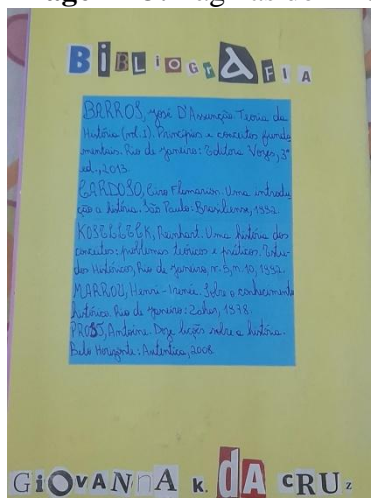 BIBLIOGRAFIA
BARROS, José D'Assunção. Teoria da
História (vol. 1). Princípios e conceitos funda
mentais. Rio de Janeiro: Editora Vozes, 3ª
ed., 2013.
CARDOSO, Ciro Flamarion. Uma introdu
ção a história. São Paulo: Brasiliense, 1992.
KOSELLECK, Reinhart. Uma história dos
conceitos: problemas teóricos e práticos. Estu-
dos Históricos, Rio de Janeiro, n. 5, n. 10, 1992.
MARROU, Henri-Irénée. Sobre o conhecimento
histórico. Rio de Janeiro: Zahar, 1978.
PROST, Antoine. Doze lições sobre a história.
Belo Horizonte: Autentica, 2008.
GiOVANNA K. DA CRUz